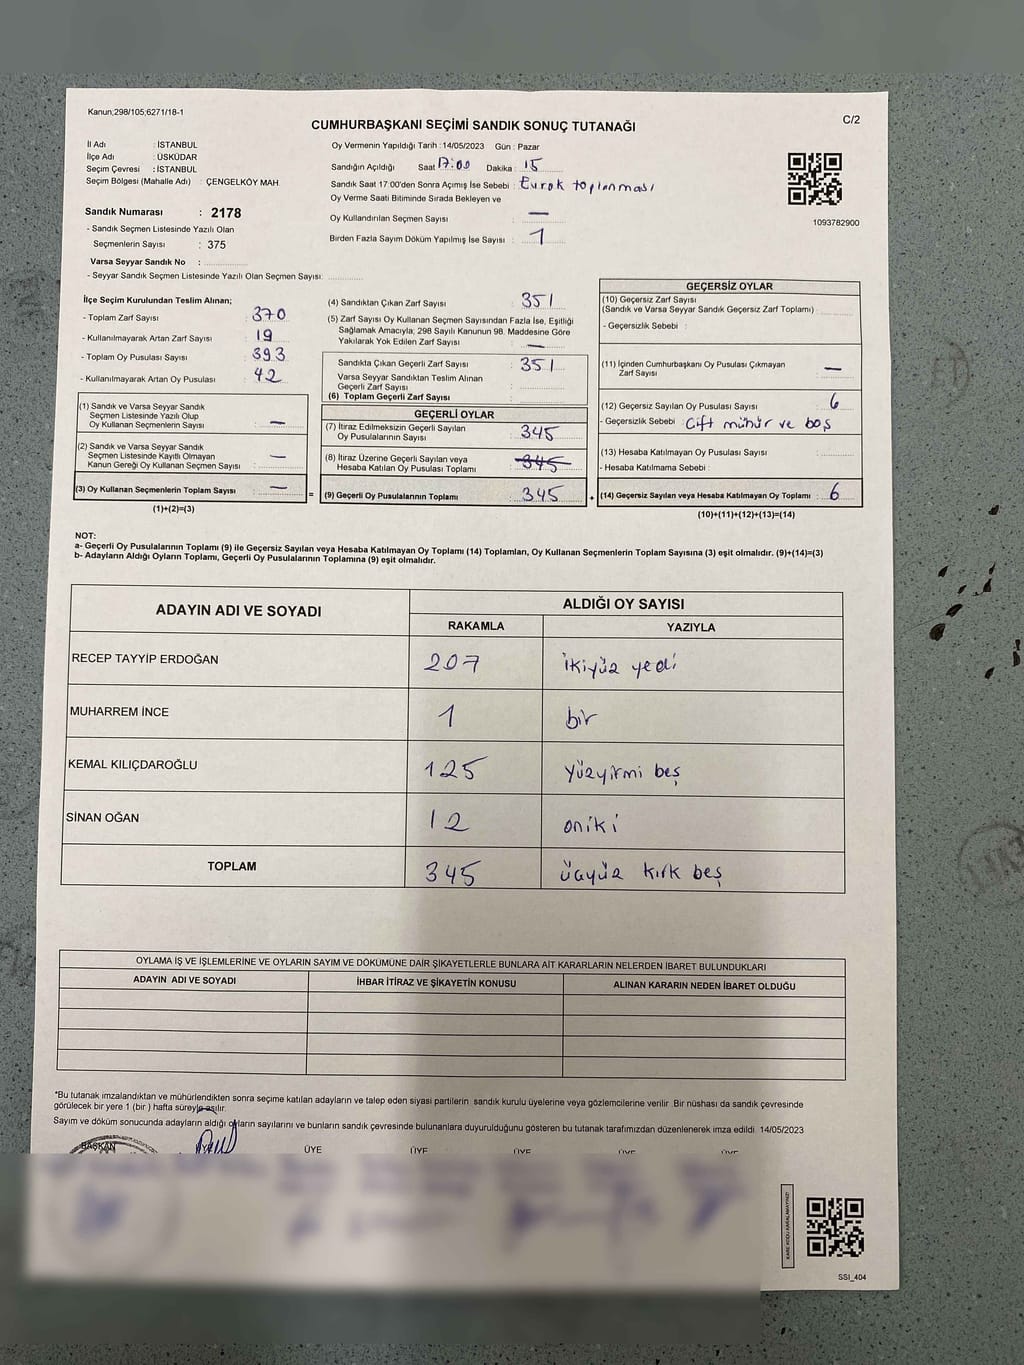 Kanun;298/105;6271/18-1
C/2
CUMHURBAŞKANI SEÇİMİ SANDIK SONUÇ TUTANAĞI
İl Adı : İSTANBUL
İlçe Adı : ÜSKÜDAR
Seçim Çevresi : İSTANBUL
Seçim Bölgesi (Mahalle Adı) : ÇENGELKÖY MAH.
Sandık Numarası : 2178
- Sandık Seçmen Listesinde Yazılı Olan
Seçmenlerin Sayısı : 375
Varsa Seyyar Sandık No :
- Seyyar Sandık Seçmen Listesinde Yazılı Olan Seçmen Sayısı:
Oy Vermenin Yapıldığı Tarih : 14/05/2023 Gün : Pazar
Sandığın Açıldığı Saat 17:00 Dakika : 15
Sandık Saat 17:00'den Sonra Açımış İse Sebebi : Evrak toplanması
Oy Verme Saati Bitiminde Sırada Bekleyen ve
Oy Kullandırılan Seçmen Sayısı : —
Birden Fazla Sayım Döküm Yapılmış İse Sayısı : 1
1093782900
İlçe Seçim Kurulundan Teslim Alınan;
- Toplam Zarf Sayısı : 370
- Kullanılmayarak Artan Zarf Sayısı : 19
- Toplam Oy Pusulası Sayısı : 393
- Kullanılmayarak Artan Oy Pusulası : 42
(1) Sandık ve Varsa Seyyar Sandık
Seçmen Listesinde Yazılı Olup
Oy Kullanan Seçmenlerin Sayısı : —
(2) Sandık ve Varsa Seyyar Sandık
Seçmen Listesinde Kayıtlı Olmayan
Kanun Gereği Oy Kullanan Seçmen Sayısı : —
(3) Oy Kullanan Seçmenlerin Toplam Sayısı : —
(1)+(2)=(3)
=
(4) Sandıktan Çıkan Zarf Sayısı : 351
(5) Zarf Sayısı Oy Kullanan Seçmen Sayısından Fazla İse, Eşitliği
Sağlamak Amacıyla; 298 Sayılı Kanunun 98. Maddesine Göre
Yakılarak Yok Edilen Zarf Sayısı : —
Sandıkta Çıkan Geçerli Zarf Sayısı : 351
Varsa Seyyar Sandıktan Teslim Alınan
Geçerli Zarf Sayısı :
(6) Toplam Geçerli Zarf Sayısı :
GEÇERLİ OYLAR
(7) İtiraz Edilmeksizin Geçerli Sayılan
Oy Pusulalarının Sayısı : 345
(8) İtiraz Üzerine Geçerli Sayılan veya
Hesaba Katılan Oy Pusulası Toplamı : 345
(9) Geçerli Oy Pusulalarının Toplamı : 345
+
GEÇERSİZ OYLAR
(10) Geçersiz Zarf Sayısı
(Sandık ve Varsa Seyyar Sandık Geçersiz Zarf Toplamı) :
- Geçersizlik Sebebi :
(11) İçinden Cumhurbaşkanı Oy Pusulası Çıkmayan
Zarf Sayısı : —
(12) Geçersiz Sayılan Oy Pusulası Sayısı : 6
- Geçersizlik Sebebi : Çift mühür ve boş
(13) Hesaba Katılmayan Oy Pusulası Sayısı :
- Hesaba Katılmama Sebebi :
(14) Geçersiz Sayılan veya Hesaba Katılmayan Oy Toplamı : 6
(10)+(11)+(12)+(13)=(14)
NOT:
a- Geçerli Oy Pusulalarının Toplamı (9) ile Geçersiz Sayılan veya Hesaba Katılmayan Oy Toplamı (14) Toplamları, Oy Kullanan Seçmenlerin Toplam Sayısına (3) eşit olmalıdır. (9)+(14)=(3)
b- Adayların Aldığı Oyların Toplamı, Geçerli Oy Pusulalarının Toplamına (9) eşit olmalıdır.
ADAYIN ADI VE SOYADI
ALDIĞI OY SAYISI
RAKAMLA YAZIYLA
RECEP TAYYİP ERDOĞAN 207 ikiyüz yedi
MUHARREM İNCE 1 bir
KEMAL KILIÇDAROĞLU 125 Yüzyirmi beş
SİNAN OĞAN 12 oniki
TOPLAM 345 üçyüz kırk beş
OYLAMA İŞ VE İŞLEMLERİNE VE OYLARIN SAYIM VE DÖKÜMÜNE DAİR ŞİKAYETLERLE BUNLARA AİT KARARLARIN NELERDEN İBARET BULUNDUKLARI
ADAYIN ADI VE SOYADI İHBAR İTİRAZ VE ŞİKAYETİN KONUSU ALINAN KARARIN NEDEN İBARET OLDUĞU
*Bu tutanak imzalandıktan ve mühürlendikten sonra seçime katılan adayların ve talep eden siyasi partilerin sandık kurulu üyelerine veya gözlemcilerine verilir .Bir nüshası da sandık çevresinde
görülecek bir yere 1 (bir ) hafta süreyle asılır.
Sayım ve döküm sonucunda adayların aldığı oyların sayılarını ve bunların sandık çevresinde bulunanlara duyurulduğunu gösteren bu tutanak tarafımızdan düzenlenerek imza edildi. 14/05/2023
BAŞKAN ÜYE ÜYE ÜYE ÜYE ÜYE
KARE KODU KARALAMAYINIZ!
SSI_404